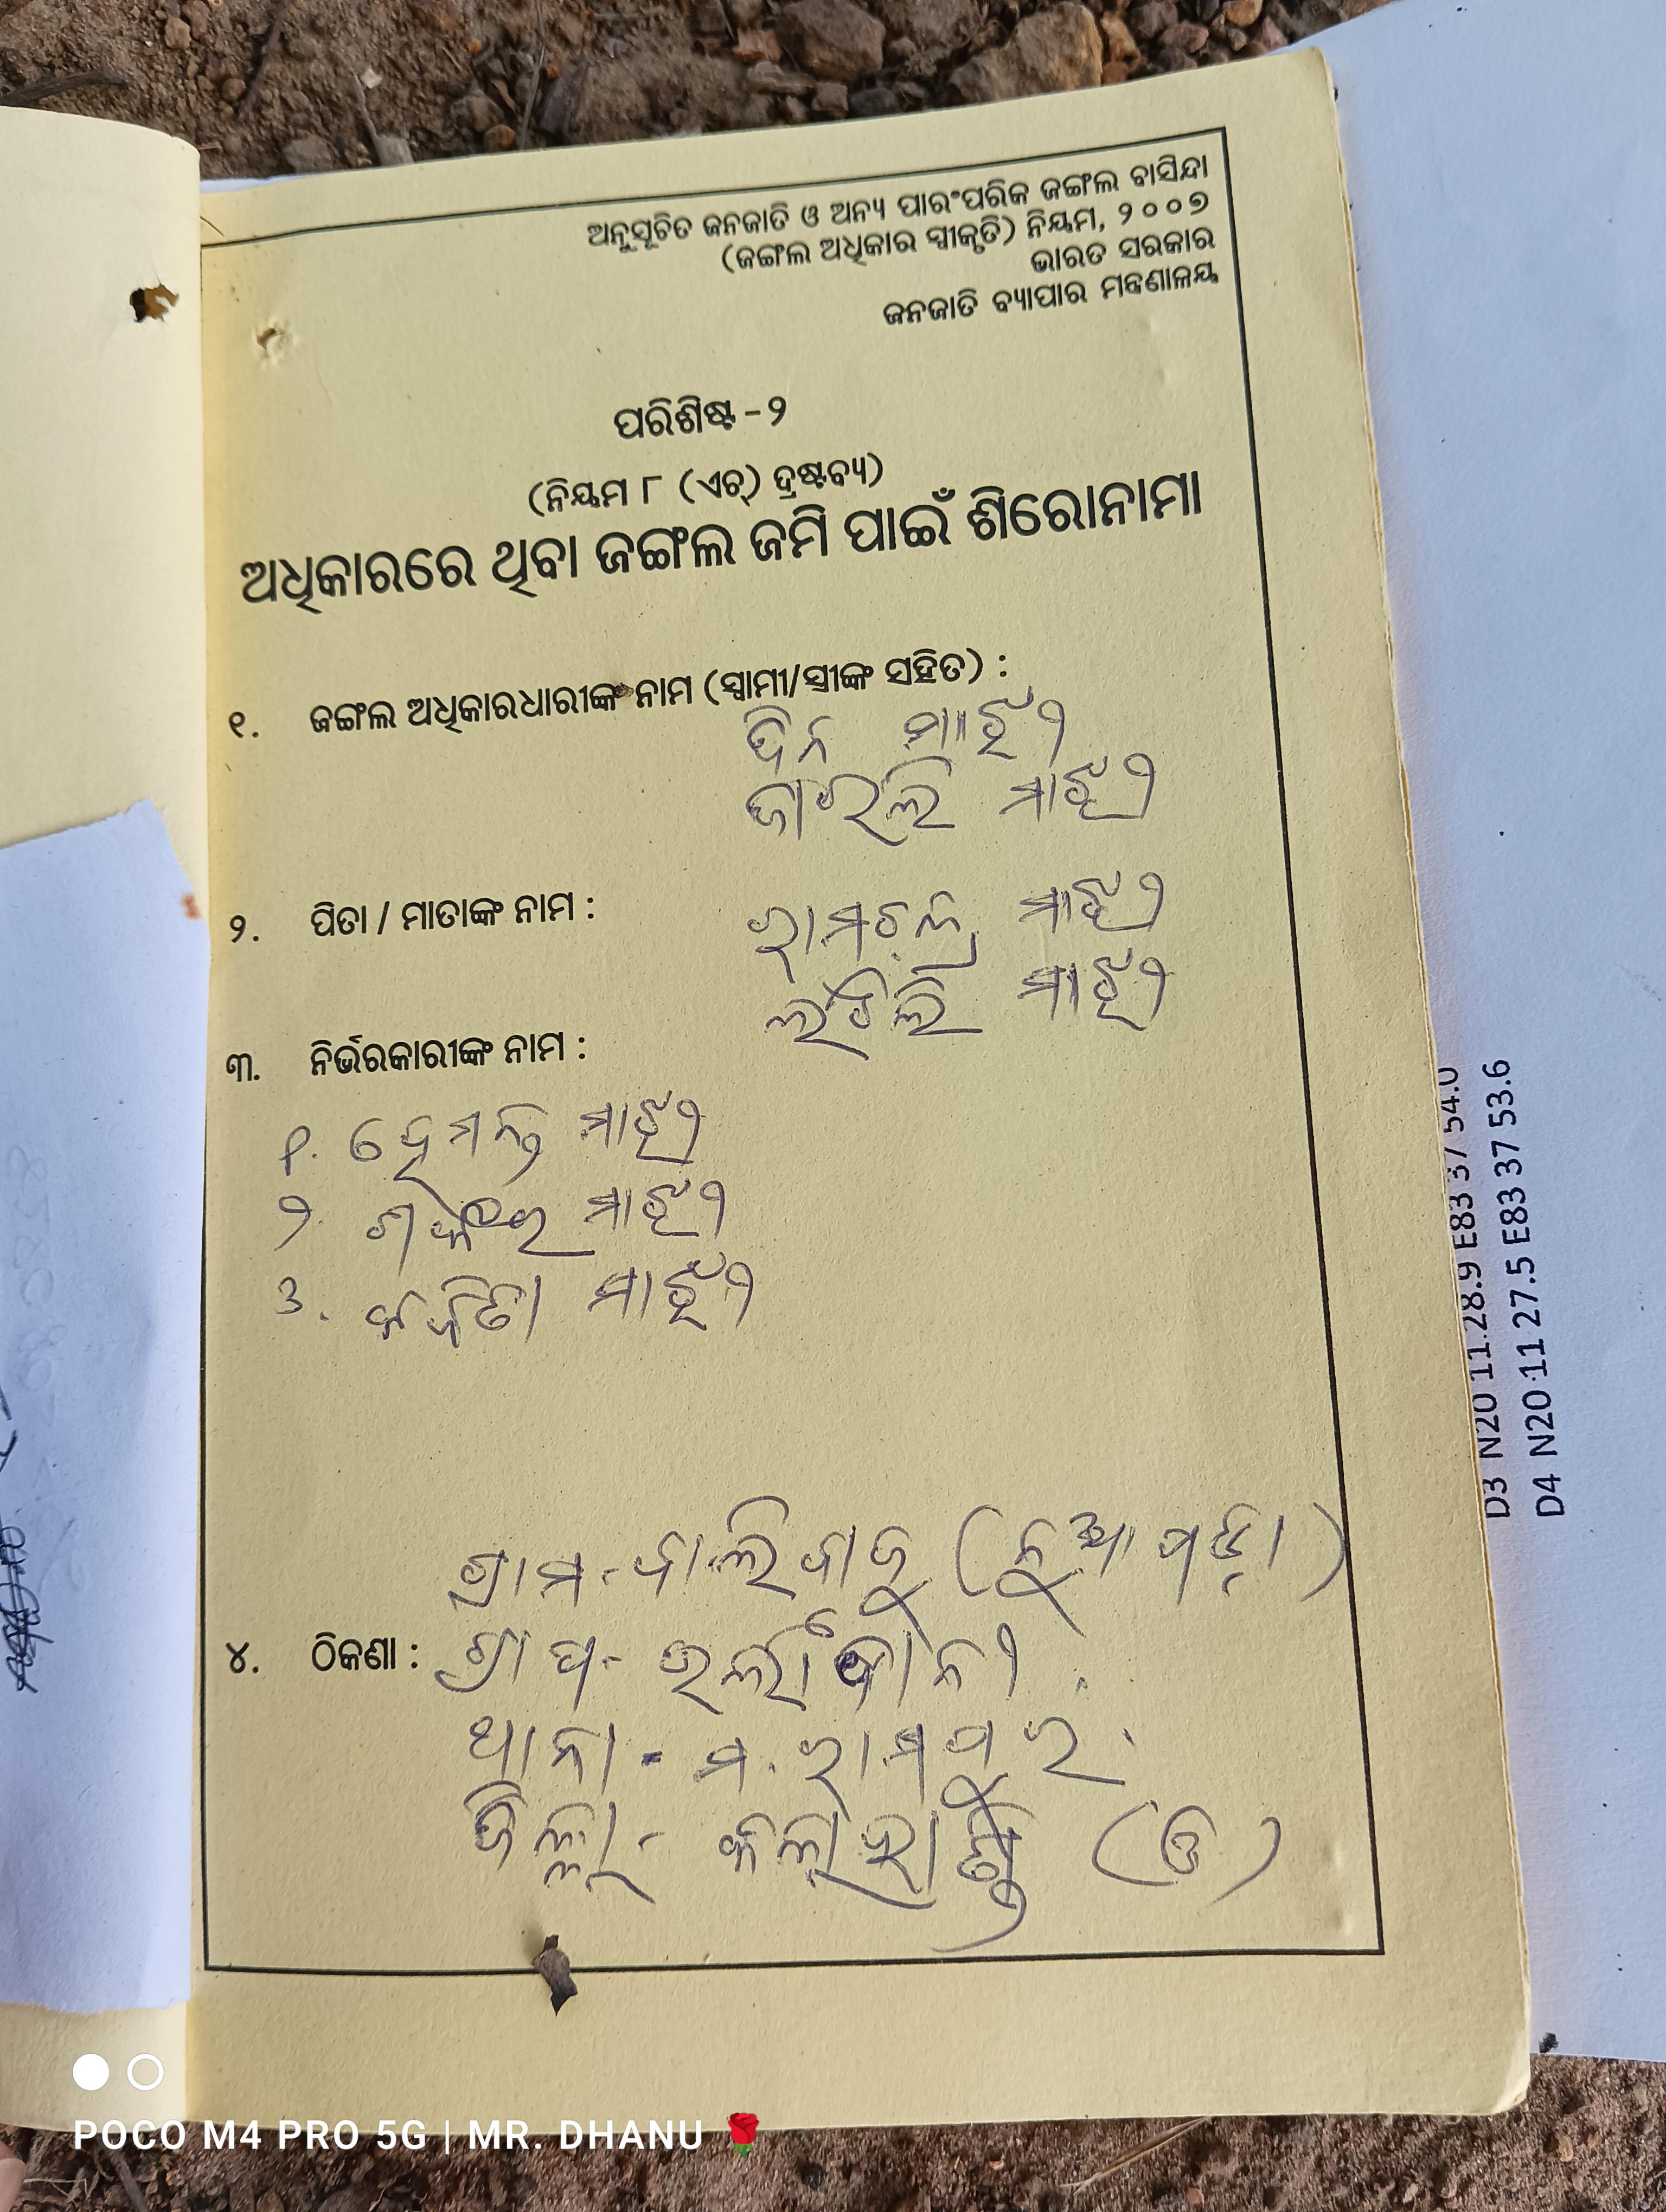 ଅନୁସୂଚିତ ଜନଜାତି ଓ ଅନ୍ୟ ପାରଂପରିକ ଜଙ୍ଗଲ ବାସିନ୍ଦା
(ଜଙ୍ଗଲ ଅଧିକାର ସ୍ୱୀକୃତି) ନିୟମ, ୨୦୦୭
ଭାରତ ସରକାର
ଜନଜାତି ବ୍ୟାପାର ମନ୍ତ୍ରଣାଳୟ
ପରିଶିଷ୍ଟ - ୨
(ନିୟମ ୮ (ଏଚ୍) ଦ୍ରଷ୍ଟବ୍ୟ)
ଅଧିକାରରେ ଥିବା ଜଙ୍ଗଲ ଜମି ପାଇଁ ଶିରୋନାମା
୧. ଜଙ୍ଗଲ ଅଧିକାରଧାରୀଙ୍କ ନାମ (ସ୍ୱାମୀ/ସ୍ତ୍ରୀଙ୍କ ସହିତ) :
ଦିନ ମାଝୀ
ମାଝୀ
୨. ପିତା / ମାତାଙ୍କ ନାମ :
ମାଝୀ
ମାଝୀ
୩. ନିର୍ଭରକାରୀଙ୍କ ନାମ :
୧. ହେମନ୍ତ ମାଝୀ
୨. ଶଙ୍କର ମାଝୀ
୩. କବିତା ମାଝୀ
ଗ୍ରାମ - ବାଲିବାଜୁ (ନୁଆପଡ଼ା)
୪. ଠିକଣା : ଗ୍ରା ପ -
ଥାନା - ମ. ରାମପୁର
ଜିଲ୍ଲା - କଳାହାଣ୍ଡି (ଓ)
D3 N20 11 28.9 E83 37 54.0
D4 N20 11 27.5 E83 37 53.6
POCO M4 PRO 5G | MR. DHANU